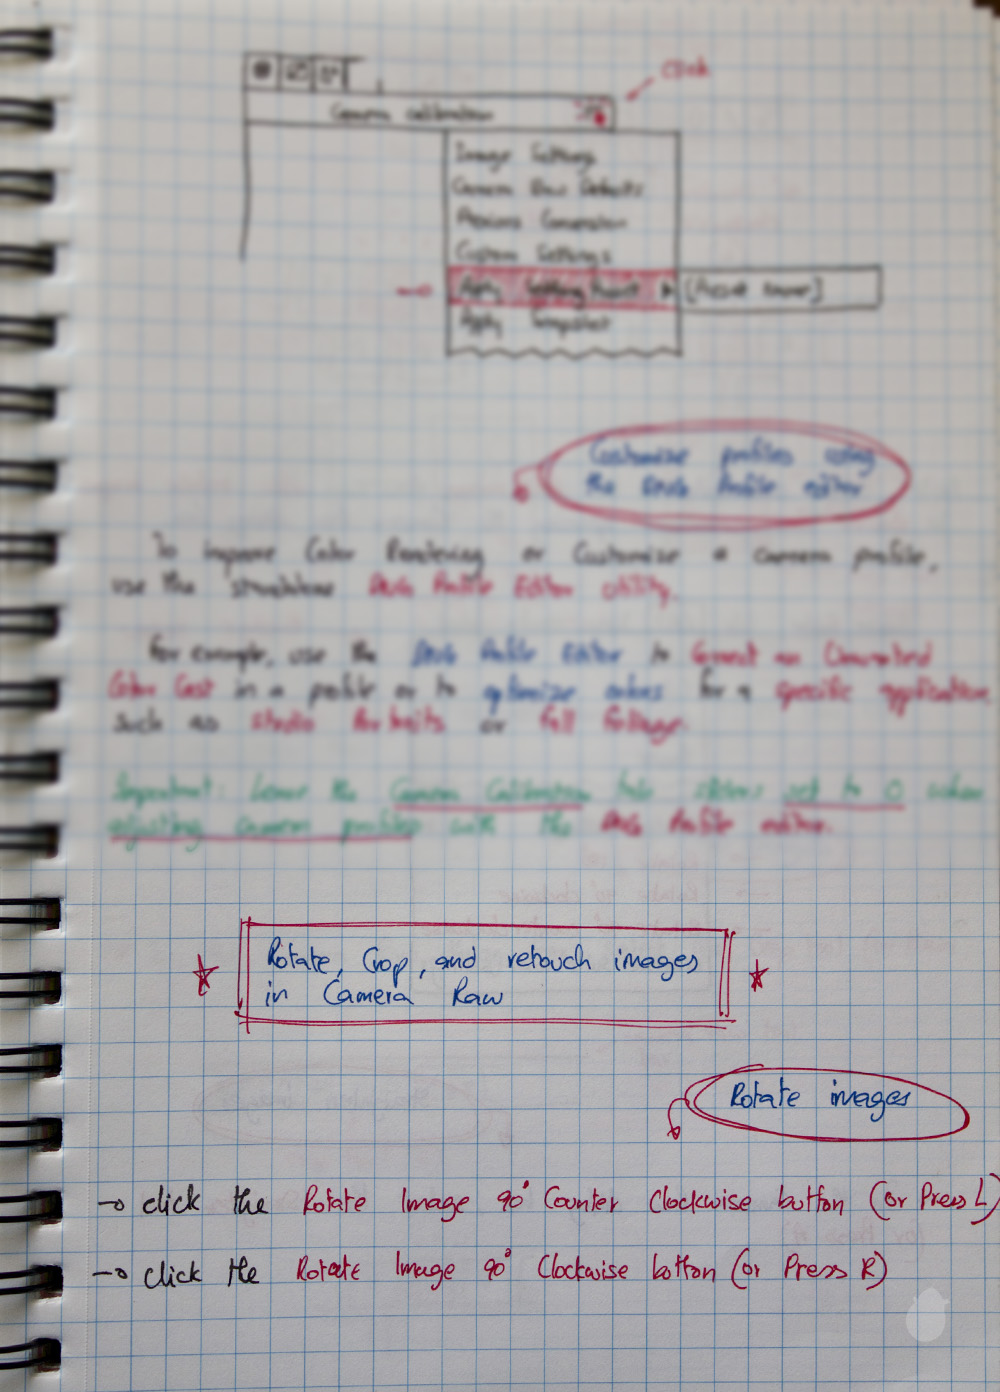 Click
Camera Calibration
Image Settings
Camera Raw Defaults
Previous Conversion
Custom Settings
Apply Setting Preset
[Preset name]
Apply Snapshot
Customize profiles using
the DNG Profile editor
To improve Color Rendering or Customize a camera profile,
use the standalone DNG Profile Editor utility.
For example, use the DNG Profile Editor to Correct an Unwanted
Color Cast in a profile or to optimize colors for a specific application
such as studio Portraits or fall foliage.
Important: Leave the Camera Calibration tab sliders set to 0 when
adjusting camera profiles with the DNG Profile editor.
Rotate, Crop, and retouch images
in Camera Raw
Rotate images
click the Rotate Image 90° Counter Clockwise button (or Press L)
click the Rotate Image 90° Clockwise button (or Press R)